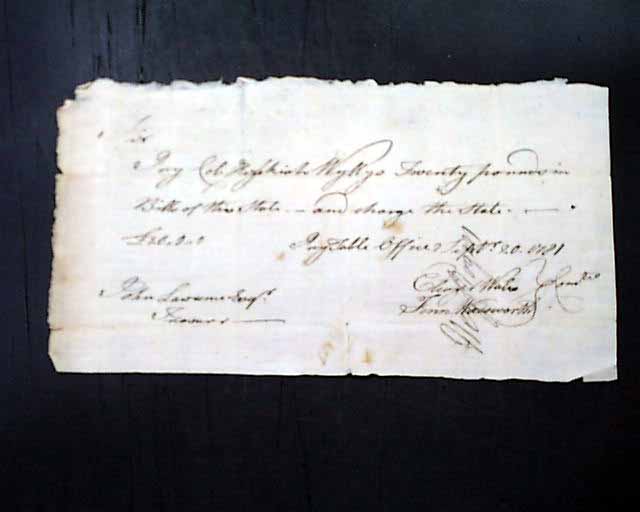 Sir
Pay Col Hezekiah Wyllys Twenty pounds in
Bills of this State — and charge the State. —
£20.0.0 Pay Table Office Sept.r 20. 1781
John Lawrence Esq.r Eleaz.r Wales } Com.tee
Treasurer — Fenn Wadsworth